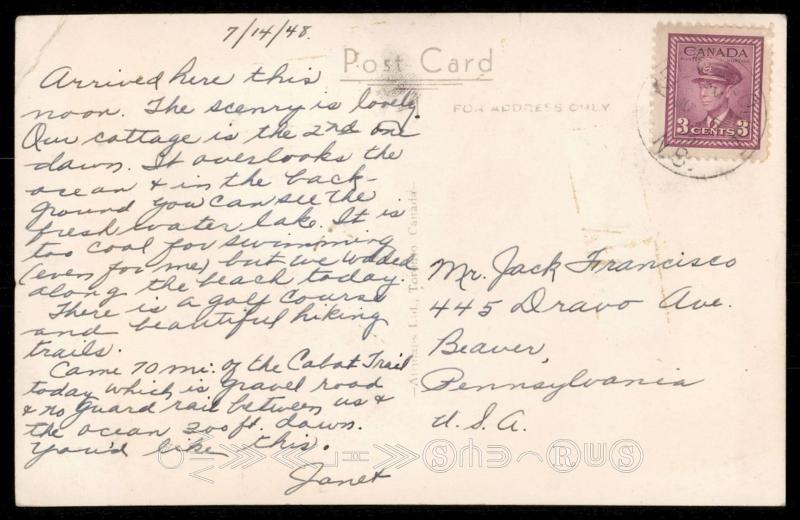 7/14/48.
Post Card
FOR ADDRESS ONLY
CANADA
3 CENTS 3
N.S.
Arrived here this
noon. The scenry is lovely
Our cottage is the 2nd one
down. It overlooks the
ocean & in the back-
ground you can see the
fresh water lake. It is
too cool for swimming
(even for me) but we waded
along the beach today.
There is a golf course
and beautiful hiking
trails.
Came 70 mi. of the Cabot Trail
today which is gravel road
& no guard rail between us &
the ocean 200ft. down.
You'd like this.
Janet
Mr. Jack Francisco
445 Dravo Ave.
Beaver,
Pennsylvania
U.S.A.
Ltd., Toronto, Canada.